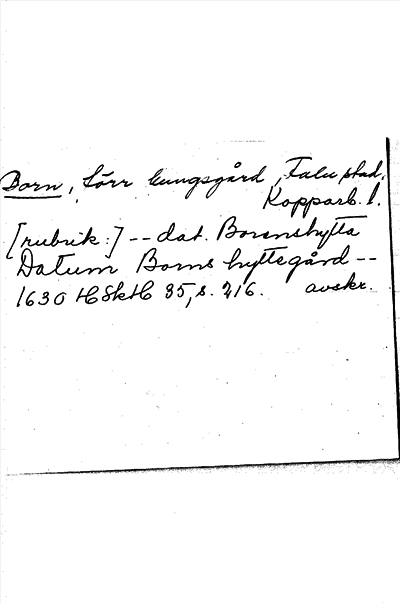 Born, förr kungsgård, Falu stad,
Kopparb. l.
[rubrik:] -- dat. Borenshytta
Datum Borns hyttegård --
1630 HSkH 35, s. 216. avskr.